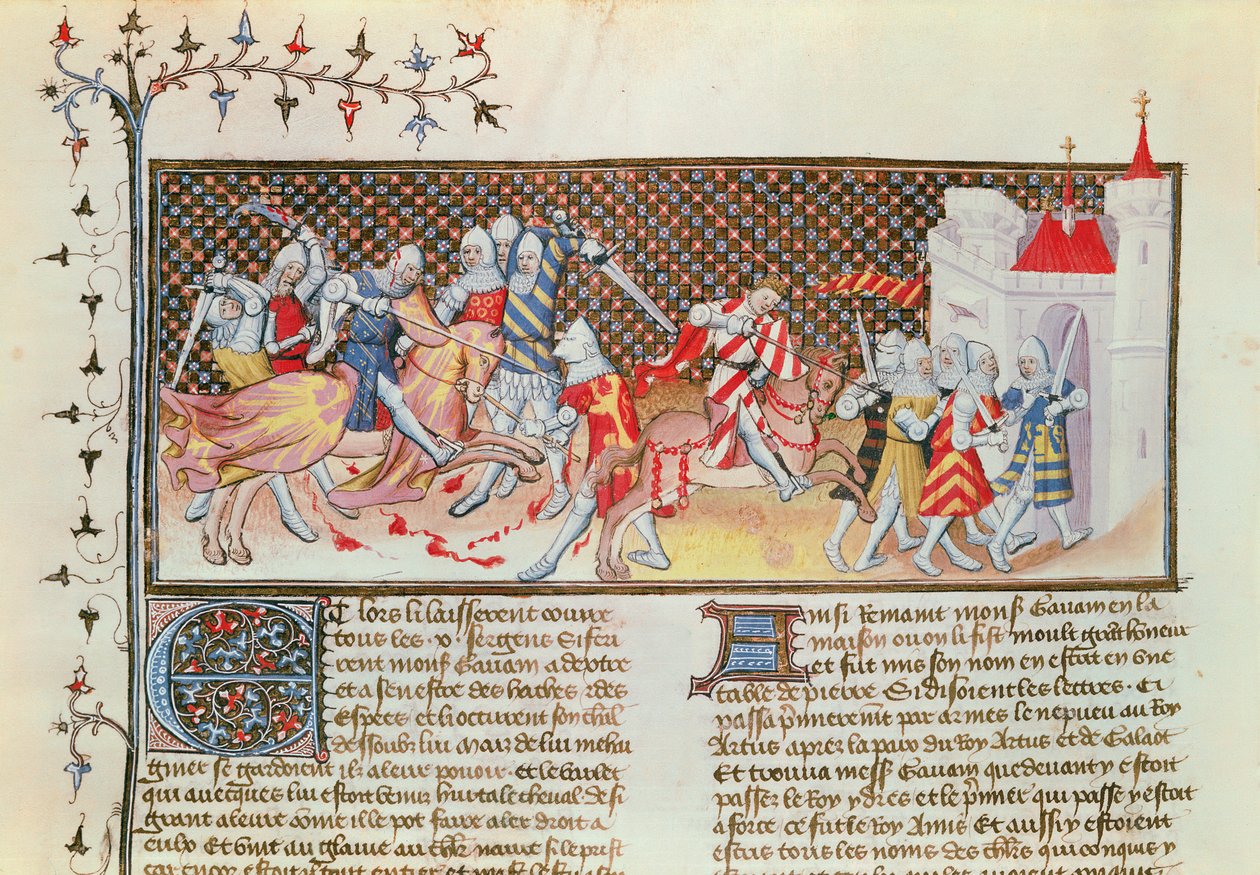 Et lors li laissierent courre
tous les .v. sergens Si feri
rent monss Gauvain a dextre
et a senestre des haches et des
Espees et li occirent son chal
dessoubz lui Maiz de lui mehai
gnier se gardoient ilz a leur pouoir. et le varlet
qui avecques lui estoit venuz hurta le cheval de si
grant aleure comme il le pot faire aler droit a
eulx Et vint au glaive au
car encor estoit tout entier et
Ainsi Remaint monss Gauvain en la
maison ou on li fist moult grant honneur
et fut mis son nom en escript en une
table de pierre Si disoient les lettres. Ci
passa premierement par armes le nepueu au Roy
Artus aprez la paix du Roy Artus et de Galaot
Et trouva mess Gauvain que devant y estoit
passez le Roy ydres et le premier qui passe y estoit
a force ce fut le Roy Et aussi y estoient
escris tous les noms des chlrs qui conques y